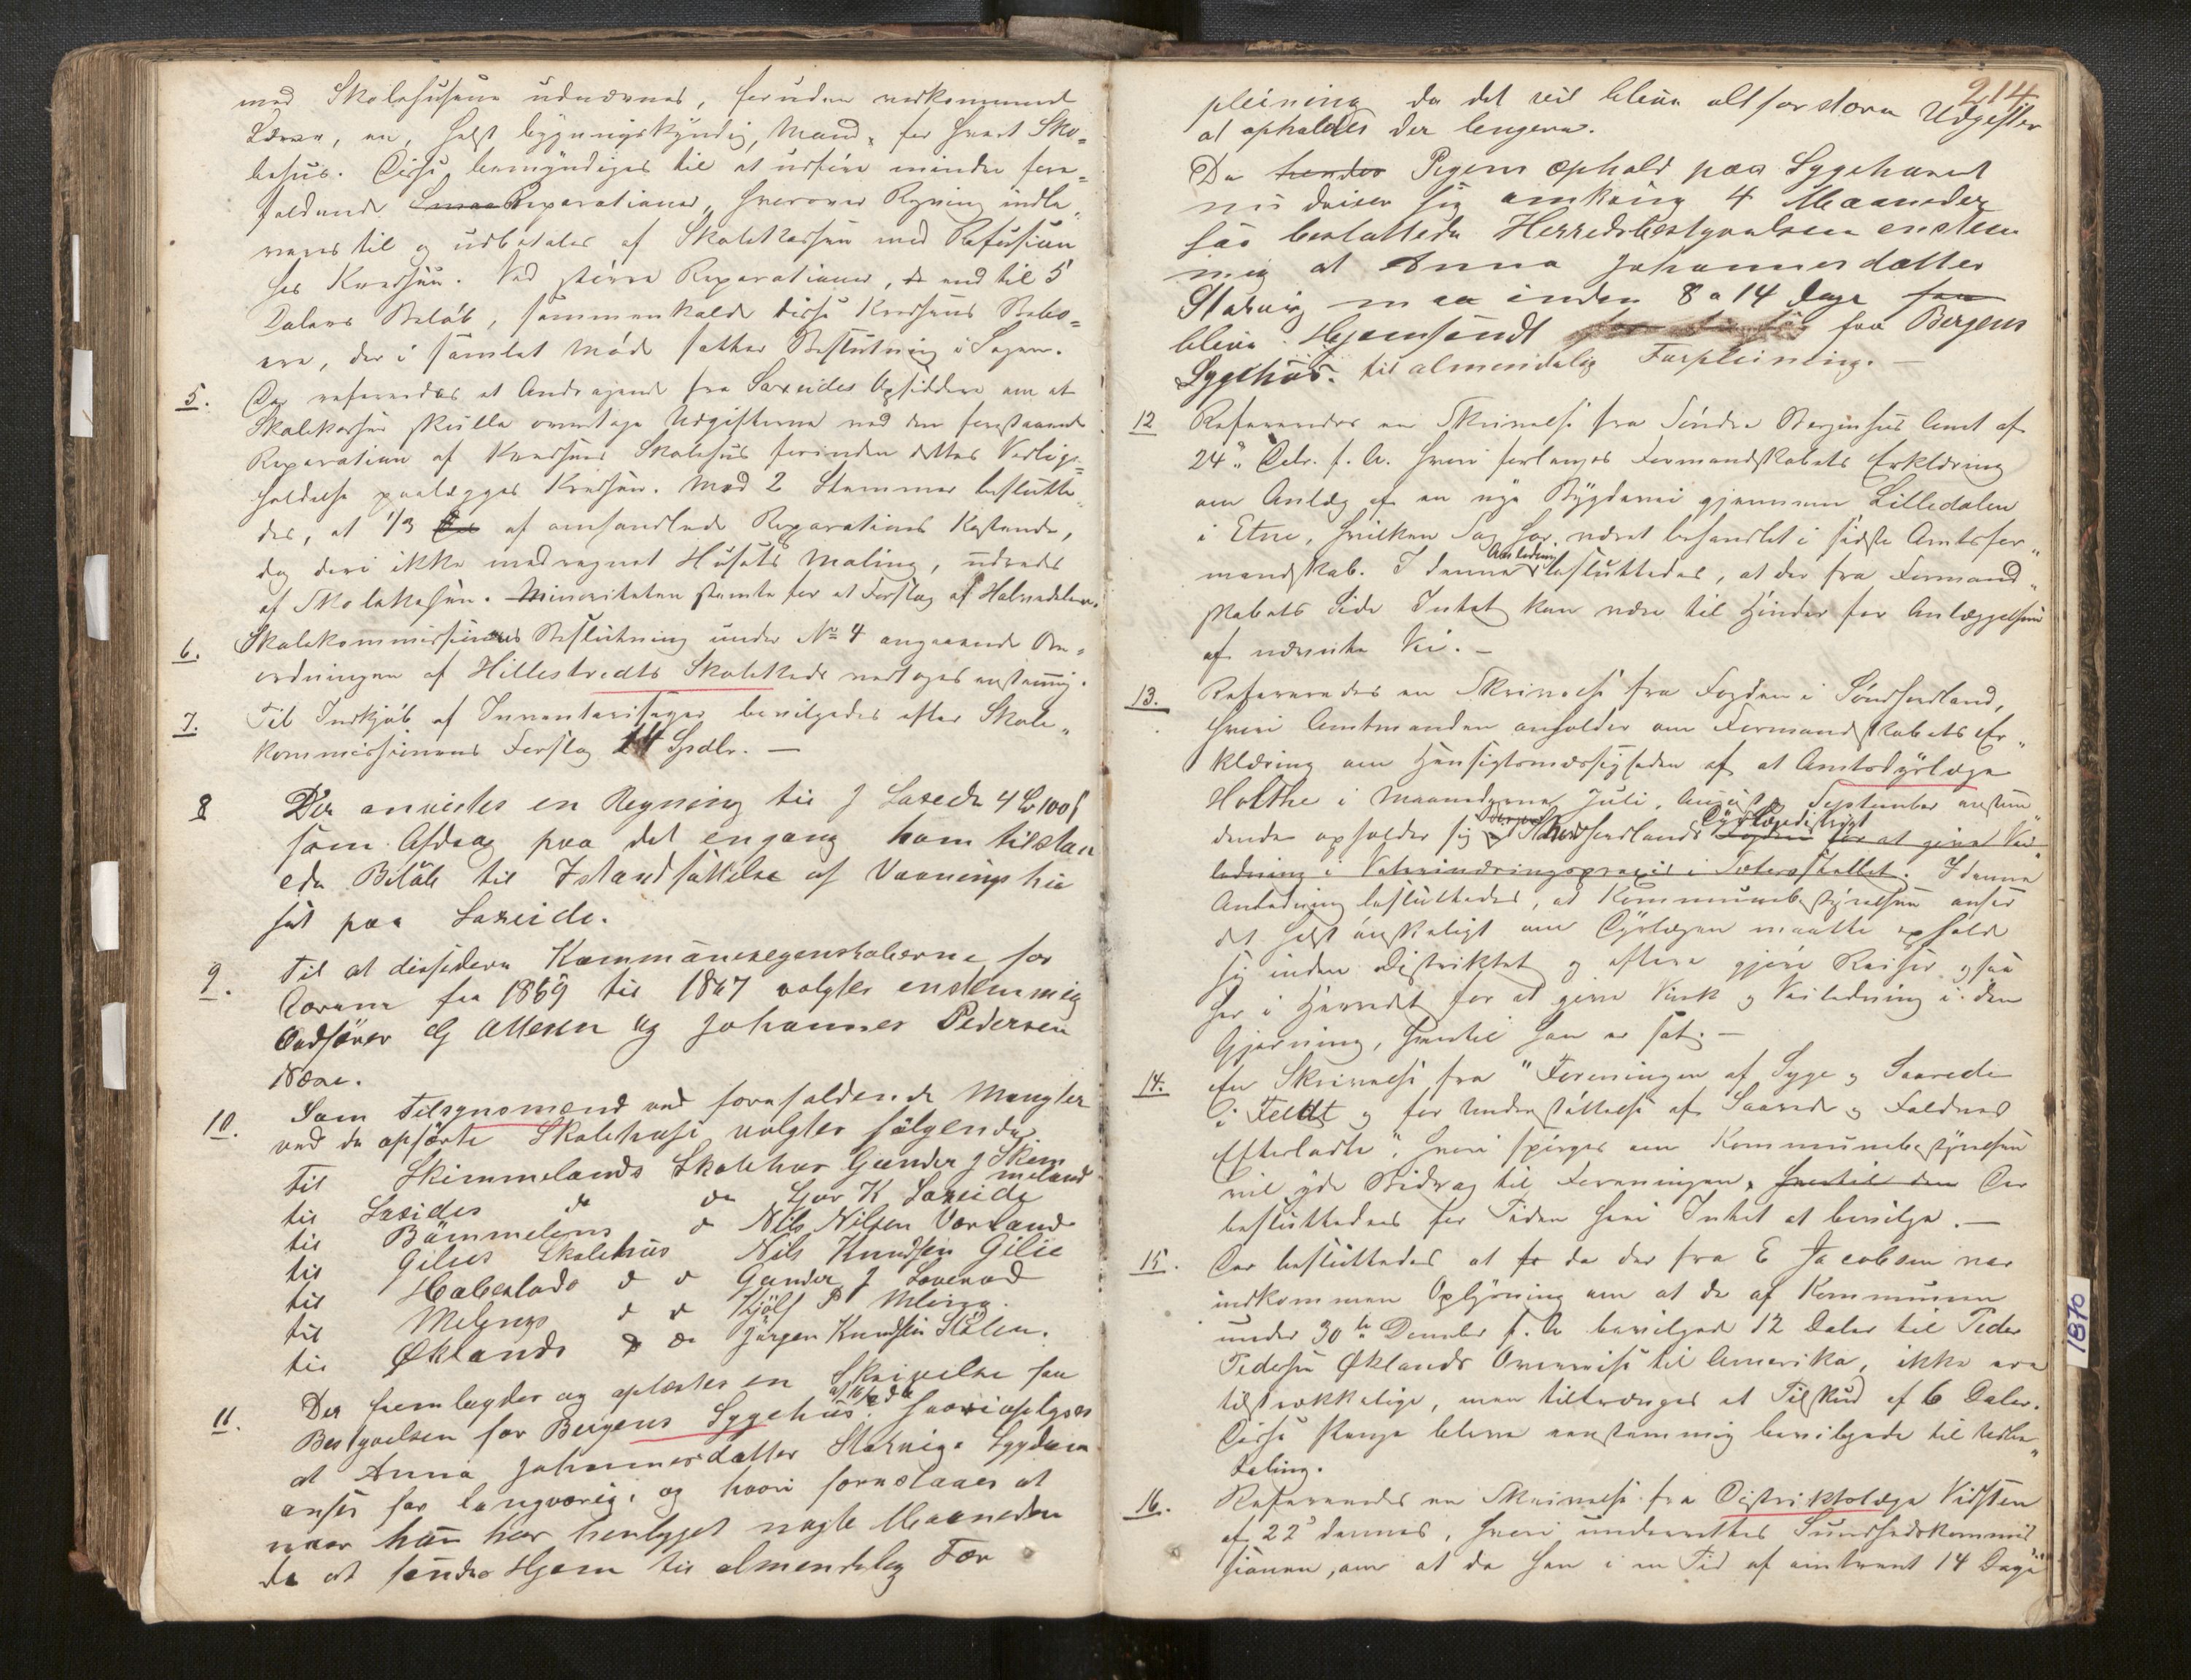 med Skolehusene udnævnes, foruden vedkommende
Lærer, en, helst bygningskyndig, Mand, for hvert Sko=
lehus. Disse bemyndiges til at udføre mindre fore=
faldende Reparationer, hvorover Regning indle=
veres til og udbetales af Skolekassen med Refusion
hos Kredsen. Ved større Reparationer, end til 5
Dalers Beløb, sammenkalde disse Kredsens Bebo=
ere, der i samlet Møde fatter Beslutning i Sagen.
5. Der refereredes et Andragende fra Laxeides Opsiddere om at
Skolekassen skulle overtage Udgifterne ved den forestaaende
Reparation af Kredsens Skolehus forinden dettes Vedlige=
holdelse paalægges Kredsen. Med 2 Stemmer beslutte=
des, at 1/3 af omhandlede Reparations Kostende,
dog deri ikke medregnet Husets Maling, udredes
af Skolekassen. Minoriteten stemte for et Forslag af Halvedelen.
6. Skolekommissionens Beslutning under No 4 angaaende Om=
ordningen af Hillestvedts Skolekreds vedtoges enstemmig.
7. Til Indkjøb af Inventariesager bevilgedes efter Skole=
kommissionens Forslag 14 Spdlr. —
8 Der anvistes en Regning til J Laxeide 4 100
som Afdrag paa det engang ham tilstaa
ede Beløb til Istandsættelse af Vaaningshu
set paa Laxeide.
9. Til at decidere Kommuneregenskaberne for
Aarene fra 1869 til 1867 valgtes enstemmig
Ordfører G Ottesen og Johannes Pedersen
Nære.
10. Som Tilsynsmænd ved forefaldende Mangler
ved de opførte Skolehuse valgtes følgende
til Skimmelands Skolehus Gunder J Skim
meland
til Laxeides do do Sjur K Laxeide
til Bømmelens do Nils Nilsen Vorland
til Gilies Skolehus Nils Knudsen Gilie
til Habeslads d d Gunder J Lovenød
til Melings d d Kjølf P Meling.
til Øklands d do Jørgen Knudsen Stølen.
11. Der fremlagdes og oplæstes en Skrivelse fra
Bestyrelsen for Bergens Sygehus hvori oplyses
at Anna Johannesdatter Stakvigs Sygdom
anses for langvarig, og hvori forestaaes at
naar hun har henligget nogle Maaneder
da at sendes Hjem til almendelig For
214
pleining da det vil blive alt for store Udgifter
at opholdes der lengere.
Da hendes Pigens Ophold paa Sygehuset
nu driver sig omkring 4 Maaneder
saa besluttede Herredsbestyrelsen enstem
mig at Anna Johannesdatter
Stakvig maa inden 8 a 14 Dage
blive Hjemsendt fra Bergens
Sygehus til almendelig Forpleining. —
12 Refereredes en Skrivelse fra Søndre Bergenhus Amt af
24de Debr. f. A. hvori forlanges Formandskabets Erklæring
om Anlæg af en nye Bygdevei gjennem Lilledalen
i Etne, hvilken Sag har været behandlet i sidste Amtsfor=
mandskab. I denne Anledning besluttedes, at der fra Formand=
skabets Side Intet kan være til Hinder for Anlæggelsen
af nævnte Vei. —
13. Refereredes en Skrivelse fra Fogden i Søndhordland,
hvori Amtmanden anholder om Formandskabets Er=
klæring om Hensigtsmæssigheden af at Amtsdyrlæge
Holthe i Maanederne Juli, August, September
opholder sig i Søndhordlands Dyrlægedistrikt for at give Vei
ledning i Veterinæringspraxis i Fæterstallet. I denne
Anledning besluttedes, at Kommunebestyrelsen anser
det helst ønskeligt om Dyrlægen maatte opholde
sig inden Distriktet og oftere gjøre Reiser ogsaa
her i Herredet for at give Vink og Veiledning i den
Gjerning, hvortil han er sat. —
14. En Skrivelse fra "Foreningen af Syge og Saarede
i Feldt og for Understøttelse af Saarede og Faldnes
Efterladte", hvori spørges om Kommunebestyrelsen
vil yde Bidrag til Foreningen, hvortil den Der
besluttedes for Tiden heri Intet at bevilge. —
15. Der besluttedes at da der fra E Jacobsen var
indkommen Oplysning om at de af Kommunen
under 30te Decemb. f. A. bevilgede 12 Daler til Peder
Pedersen Øklands Overreise til Amerika, ikke ere
tilstrækkelige, men tiltrænges et Tilskud af 6 Daler.
Disse Penge bleve eenstemmig bevilgede til Udbe=
taling.
16. Refereredes en Skrivelse fra Distriktslæge Vidsten
af 22d dennes, hvori underrettes Sundhedskommis
sionen, om at da han i en Tid af omtrent 14 Dage
1870